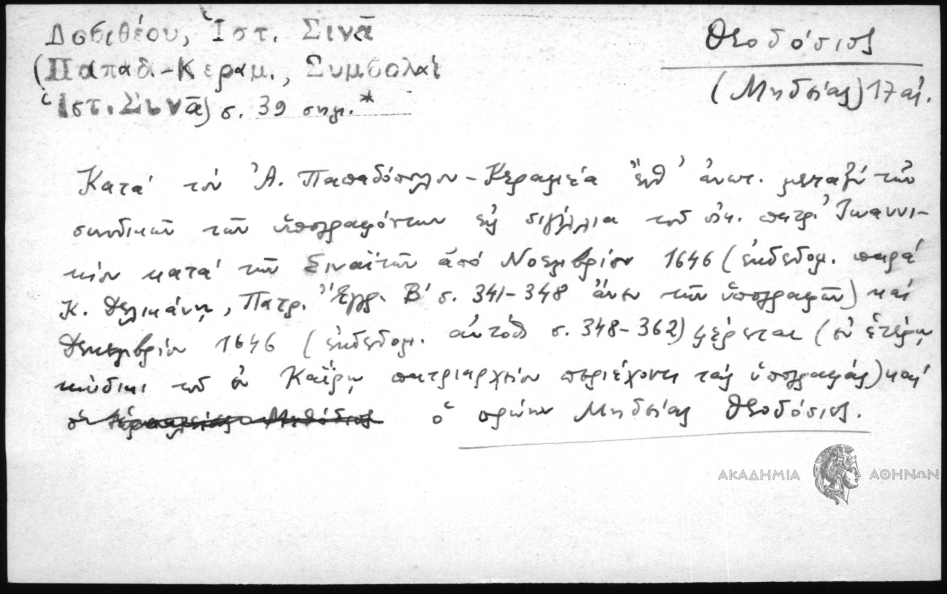 Δοσιθέου, Ἱστ. Σινᾶ
(Παπαδ.-Κεραμ., Συμβολαὶ
Ἱστ. Σινᾶ) σ. 39 σημ.*
Θεοδόσιος
(Μηδείας) 17 αἰ.
Κατὰ τὸν Ἀ. Παπαδόπουλον-Κεραμέα ἔνθ' ἀνωτ. μεταξὺ τῶν
συνοδικῶν τῶν ὑπογραψάντων εἰς σιγίλλια τοῦ οἰκ. πατρ. Ἰωαννι-
κίου κατὰ τῶν Σιναϊτῶν ἀπὸ Νοεμβρίου 1646 (ἐκδεδομ. παρὰ
Κ. Δελικάνη, Πατρ. Ἔγγρ. Β' σ. 341-348 ἄνευ τῶν ὑπογραφῶν) καὶ
Δεκεμβρίου 1646 (ἐκδεδομ. αὐτόθ. σ. 348-362) φέρεται (ἐν ἑτέρῳ
κώδικι τοῦ ἐν Καΐρῳ πατριαρχείου περιέχοντι τὰς ὑπογραφάς) καὶ
ὁ πρώην Μηδείας Θεοδόσιος.
ΑΚΑΔΗΜΙΑ ΑΘΗΝΩΝ